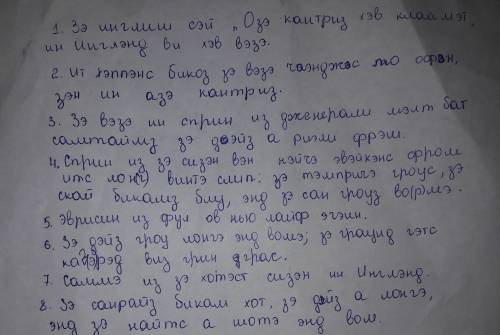 1. Зэ инглиш сэй „Озэ кантриз хэв клаймэт,
ин Инглэнд ви хэв вэзэ.
2. Ит хэппэнс бикоз зэ вэзэ чаэнджэс мо офэн,
зэн ин азэ кантриз.
3. Зэ вэзэ ин сприн из дженерали мэлт бат
самтаймз зэ дэйз а риэли фрэш.
4. Сприн из зэ сизэн вэн нэйчэ эвэйкэнс фром
итс лон(г) винтэ слип: зэ тэмпричэ гроус, зэ
скай бикамз блу, энд зэ сан гроуз во(р)мэ.
5. Эврисин из фул ов нью лайф эгэин.
6. Зэ дэйз гроу лонгэ энд вомэ; зэ граунд гэтс
ка(в)эрэд виз грин грас.
7. Саммэ из зэ хотэст сизэн ин Инглэнд.
8. Зэ санрайз бикам хот, зэ дэйз а лонгэ,
энд зэ найтс а шотэ энд вом.